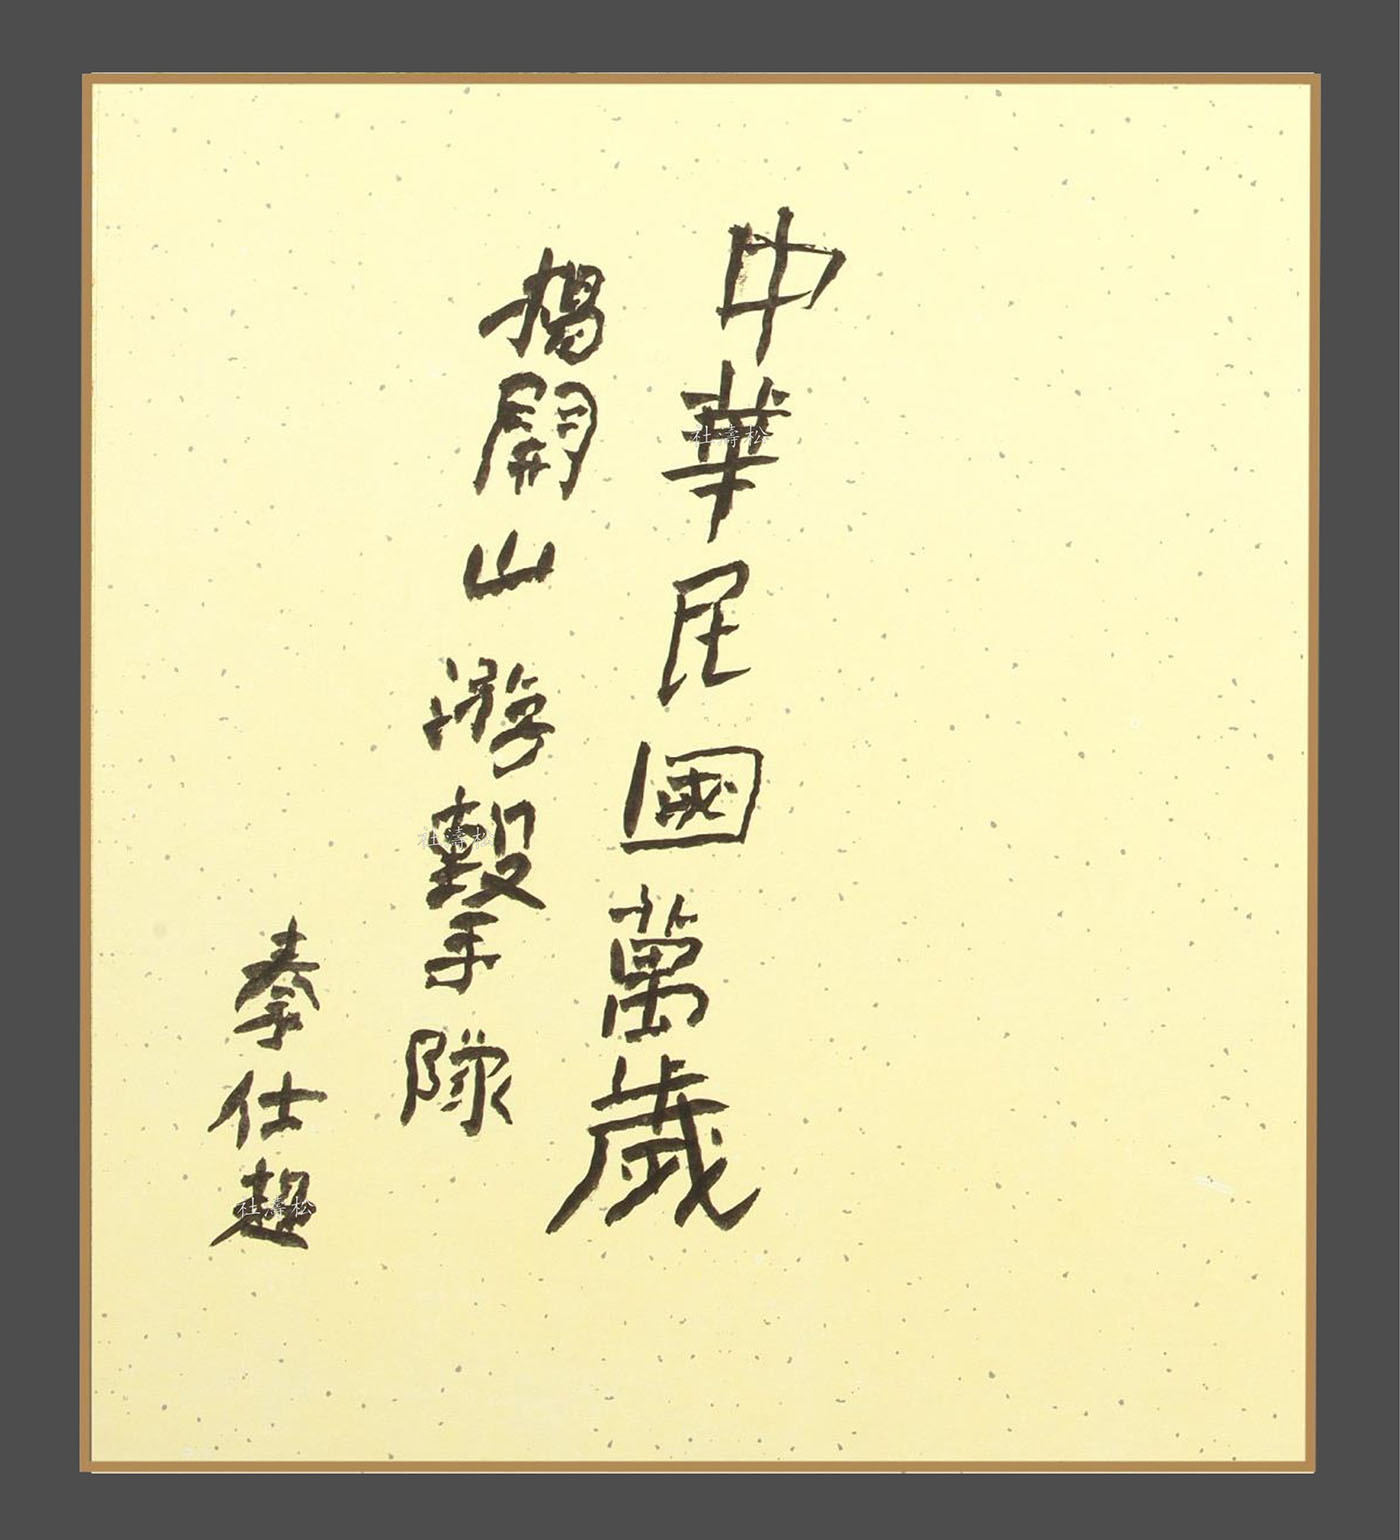 中華民國萬歲
楊開山游擊隊
秦仕超
杜濤松
杜濤松
杜濤松